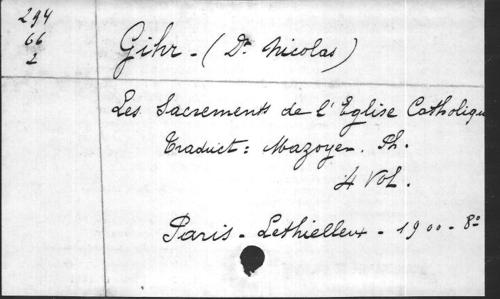 294
66
2
Gihr - (Dr Nicolas)
Les Sacrements de l'Eglise Catholique
Traduct: Mazoyer. Ph.
4 Vol.
Paris - Lethielleux - 1900 - 8º